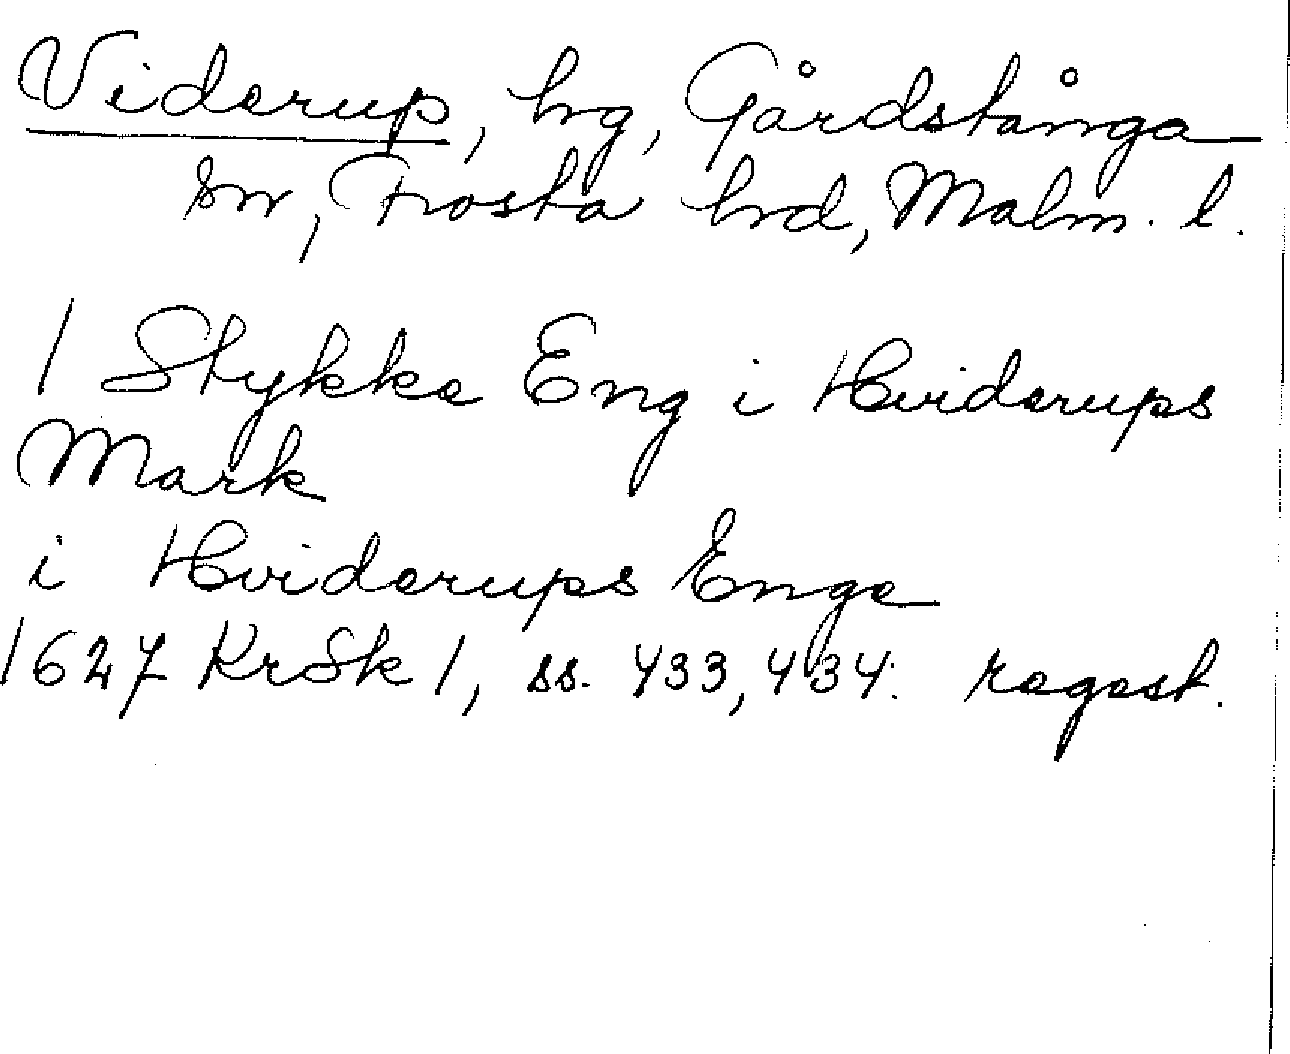 Viderup, hg, Gårdstånga
sn, Frosta hrd, Malm. l.
1 Stykke Eng i Hviderups
Mark
i Hviderups Enge
1627 KrSk 1, ss. 433, 434. regest.